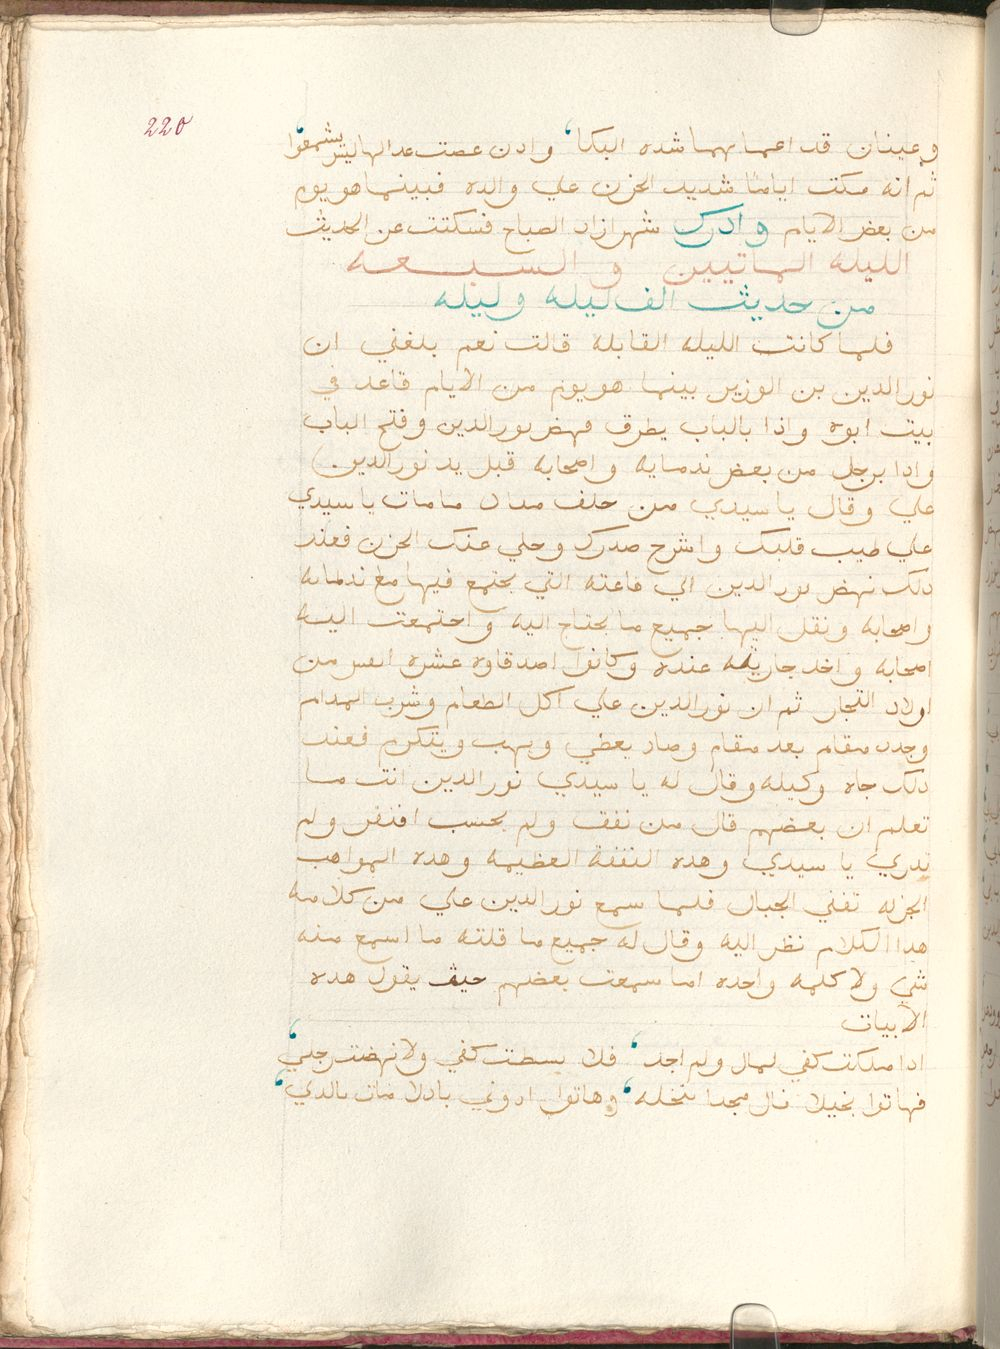 220
وعينان قد اعماهما شده البكا وادن عصت عدالها ليس يسمعوا
ثم انه مكت اياما شديد الحزن علي والده فبينما هو يوم
من بعض الايام وادرك شهرازاد الصباح فسكتت عن الحديث
الليله الماتيين والسبعه
من حديث الف ليله وليله
فلما كانت الليله القابلة قالت نعم بلغني ان
نور الدين بن الوزير بينما هو يوم من الايام قاعد في
بيت ابوه واذا بالباب يطرق فهض نور الدين وفتح الباب
وادا برجل من بعض ندمايه واصحابه قبل يد نور الدين
علي وقال يا سيدي من خلف متلك ما مات يا سيدي
علي طيب قلبك واشرح صدرك وخلي عنك الحزن فعند
دلك نهض نور الدين الي قاعته التي يجتمع فيها مع ندمايه
واصحابه ونقل اليها جميع ما يحتاج اليه واجتمعت اليه
اصحابه واخد جاريته عنده وكانوا اصدقاوه عشره انفس من
اولاد التجار ثم ان نور الدين علي اكل الطعام وشرب المدام
وجدد مقام بعد مقام وصار يعطي ويهب ويتكرم فعند
دلك جاه وكيله وقال له يا سيدي نور الدين انت ما
تعلم ان بعضهم قال من نفق ولم يحسب افتقر ولم
يدري يا سيدي وهده النفقة العظيمه وهده المواهب
الجزله تفني الجبال فلما سمع نور الدين علي من كلامه
هدا الكلام نظر اليه وقال له جميع ما قلته ما اسمع منه
شي ولا كلمه واحده اما سمعت بعضهم حيث يقول هده
الابيات
ادا ملكت كفي لمال ولم اجد فلا بسطت كفي ولا نهضت رجلي
فهاتوا بخيلا نال مجدا ببخله وهاتوا اروني بادلا مات بالدي